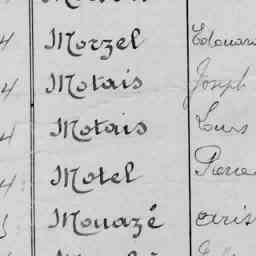 4 Morzel Edouard
4 Motais Joseph
4 Motais Louis
4 Motel Pierre
Mouazé